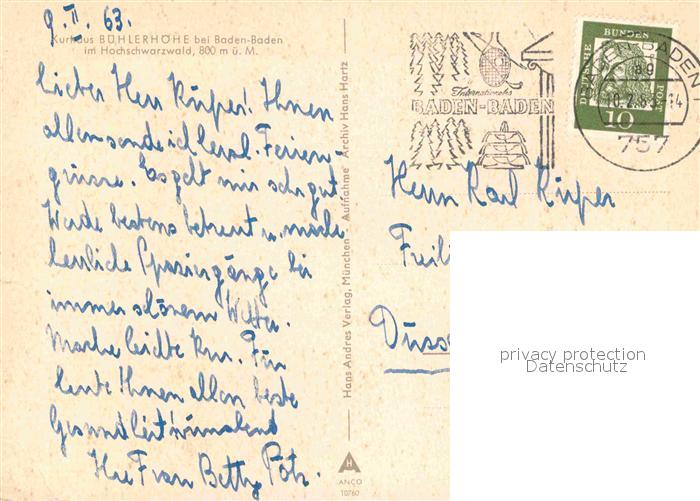 9.II.63.
Kurhaus BÜHLERHÖHE bei Baden-Baden
im Hochschwarzwald, 800 m ü. M.
Lieber Herr Küper! Ihnen
allen sende ich herzl. Ferien-
grüsse. Es geht mir sehr gut
Werde bestens betreut u. mache
herrliche Spaziergänge bei
immer schönem Wetter.
Mache leichte Kur. Für
heute Ihnen allen beste
Gesundheit wünschend
Ihre Frau Betty
Hans Andres Verlag, München · Aufnahme · Archiv Hans Hartz
ANCO
10760
Internationales
BADEN-BADEN
DEUTSCHE BUNDES POST
10
BADEN-BADEN
757
Herrn Karl Küper
Freili
Düss
privacy protection
Datenschutz